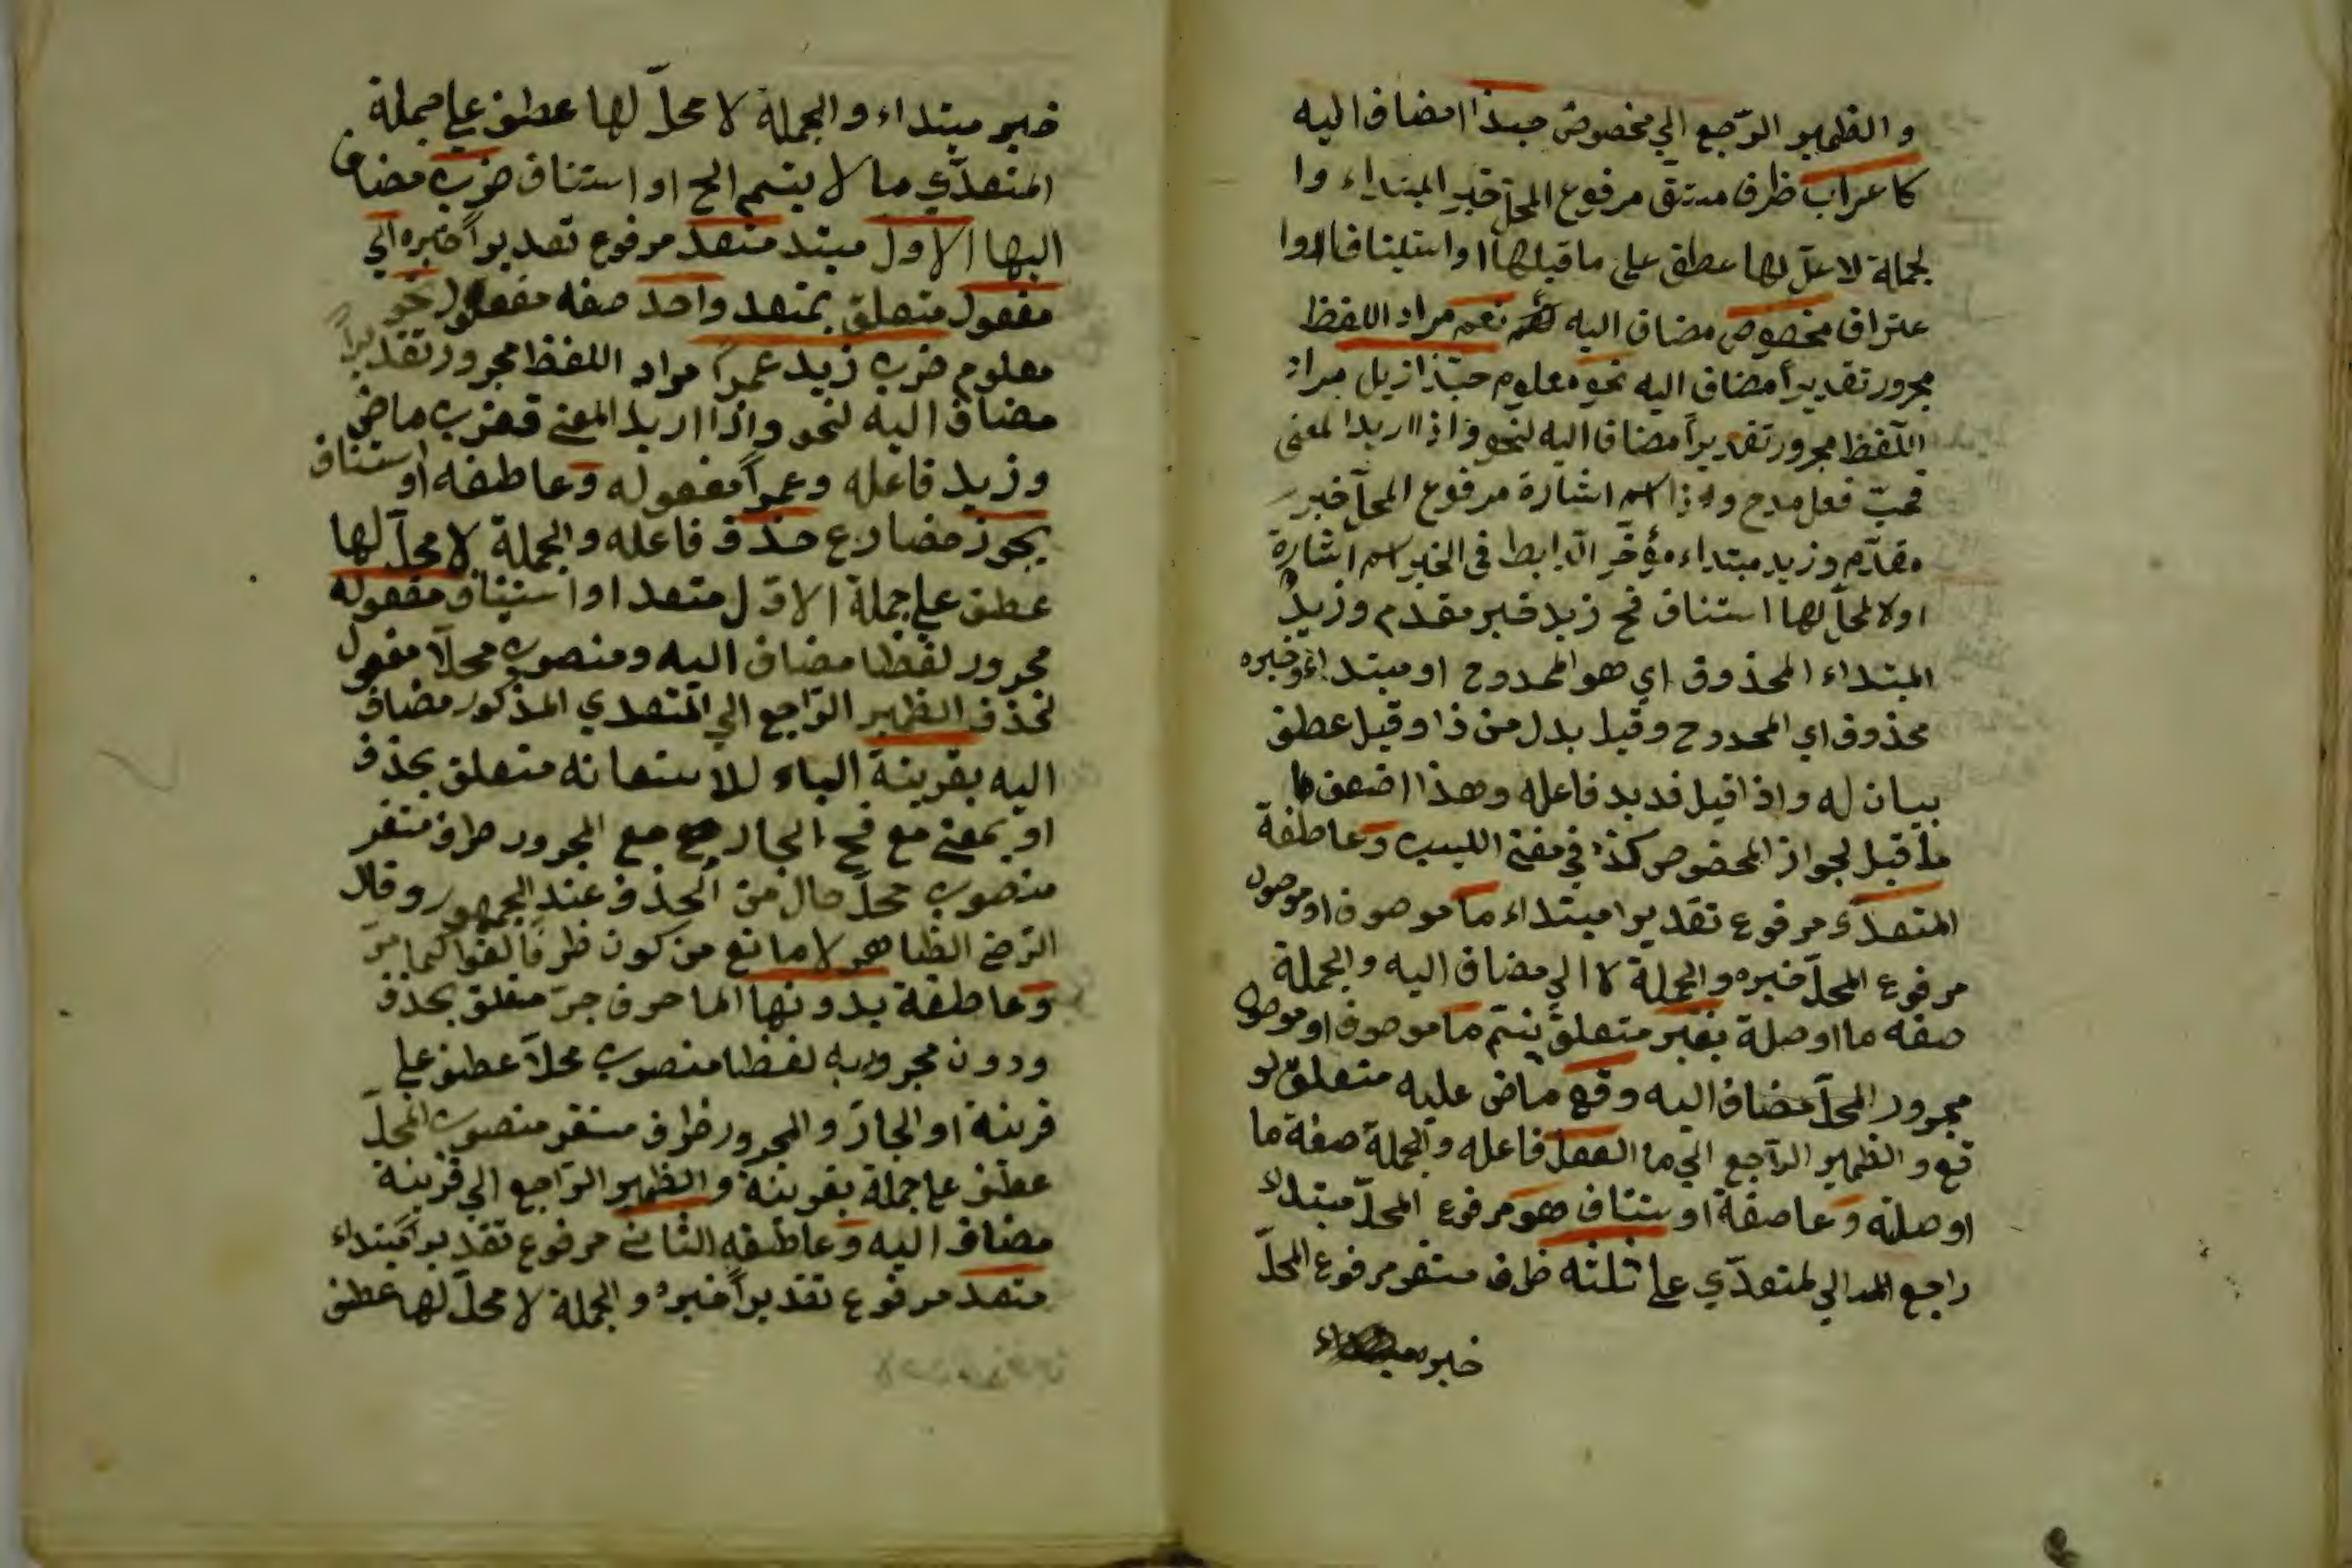 والظمير الرّجع الي مخصوص حبذا امضاف اليه
كاعراب ظرف مستقر مرفوع المحل خبر المبتداء وا
لجملة لا محلّ لها عطف على ما قبلها او استيناف اوا
عتراف مخصوص مضاف اليه نعم مراد اللفظ
مجرور تقديراً مضاف اليه نحو معلوم حبّذا زيل مراد
اللّفظ مجرور تقديراً مضاف اليه لنحو واذا اريد المعنى
فحبّ فعل مدح وذا اسم اشارة مرفوع المحلّ خبر
مقدّم وزيد مبتداء مؤخّر الرّابط في الخبر اسم اشارة
اولا لمحلّ لها استناف فح زيد خبر مقدم وزيدٌ
المبتداء المحذوف اي هو الممدوح او مبتداء وخبره
محذوف اي الممدوح وقيل بدل من ذا وقيل عطف
بيان له واذا قيل فد بد فاعله وهذا اضعف
ما قيل لجواز المخصوص كذا في مغني اللبيب وعاطفة
المتعدّي مرفوع تقديرا مبتداء ما موصوف او موصول
مرفوع المحلّ خبره والجملة لا الي مضاف اليه والجملة
صفه ما او صلة بغير متعلق يتمّ ما موصوف او موصول
مجرور المحلّ مضاف اليه وقع ماض عليه متعلق لو
قع والظمير الرّاجع الي ما الفعل فاعله والجملة صفة ما
او صلته وعاصفة او ستناف هو مرفوع المحلّ مبتداء
راجع الي لمتعدّي على ثلثه ظرف مستقر مرفوع المحلّ
خبر
خبر مبتداء والجملة لا محلّ لها عطف على جملة
المتعدّي ما لا يتم الح او استناف ضرب مضاف
اليها الاول مبتد متعد مرفوع تقديراً خبره الي
مفعول متعلق بمتعد واحد صفه مفعول نحو
معلوم ضرب زيد عمراً مراد اللفظ مجرور تقديراً
مضاف اليه لنحو واذا اريد المعني فضرب ماض
وزيد فاعله وعمراً مفعوله وعاطفه او استناف
يجوز مضارع حذف فاعله والجملة لا محلّ لها
عطف على جملة الاوّل متعد او استيناف مفعوله
مجرور لفظا مضاف اليه ومنصوب محلّا مفعول
لحذف الظمير الرّاجع الي المتعدي المذكور مضاف
اليه بقرينة الباء للاستعانه متعلق بحذف
او بمعني مع فح الجار مع المجرور ظرف مستقر
منصوب محلّ حال من الحذف عند الجمهور وقال
الرّضي الظاهر لا مانع من كون ظرفا لغوا كما مرّ
وعاطفة بدونها الما حرف جرّ متعلق بحذف
ودون مجرور به لفظا منصوب محلّا عطف علي
قرينة او الجارّ والمجرور ظرف مستقر منصوب المحلّ
عطف على جملة بقرينة والظمير الرّاجع الي قرينة
مضاف اليه وعاطفه الثاني مرفوع تقديراً مبتداء
متعد مرفوع تقديراً خبره والجملة لا محلّ لها عطف